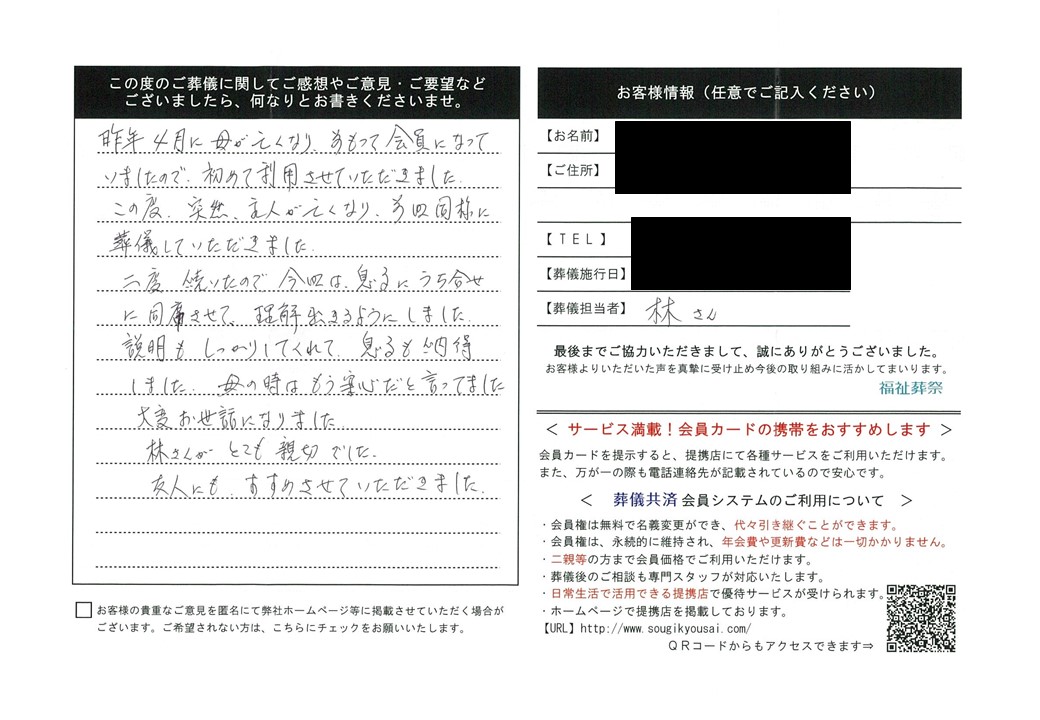 この度のご葬儀に関してご感想やご意見・ご要望など
ございましたら、何なりとお書きくださいませ。
昨年4月に母が亡くなり、前もって会員になって
いましたので、初めて利用させていただきました。
この度、突然、主人が亡くなり、前回同様に
葬儀していただきました。
二度続いたので今回は、息子にうち合せ
に同席させて、理解出きるようにしました。
説明もしっかりしてくれて、息子も納得
しました。母の時はもう安心だと言ってました
大変お世話になりました
林さんがとても親切でした。
友人にも、すすめさせていただきました。
お客様の貴重なご意見を匿名にて弊社ホームページ等に掲載させていただく場合が
ございます。ご希望されない方は、こちらにチェックをお願いいたします。
お客様情報(任意でご記入ください)
【お名前】
【ご住所】
【TEL】
【葬儀施行日】
【葬儀担当者】 林さん
最後までご協力いただきまして、誠にありがとうございました。
お客様よりいただいた声を真摯に受け止め今後の取り組みに活かしてまいります。
福祉葬祭
＜ サービス満載！会員カードの携帯をおすすめします ＞
会員カードを提示すると、提携店にて各種サービスをご利用いただけます。
また、万が一の際も電話連絡先が記載されているので安心です。
＜ 葬儀共済 会員システムのご利用について ＞
・会員権は無料で名義変更ができ、代々引き継ぐことができます。
・会員権は、永続的に維持され、年会費や更新費などは一切かかりません。
・二親等の方まで会員価格でご利用いただけます。
・葬儀後のご相談も専門スタッフが対応いたします。
・日常生活で活用できる提携店で優待サービスが受けられます。
・ホームページで提携店を掲載しております。
【URL】http://www.sougikyousai.com/
QRコードからもアクセスできます⇒